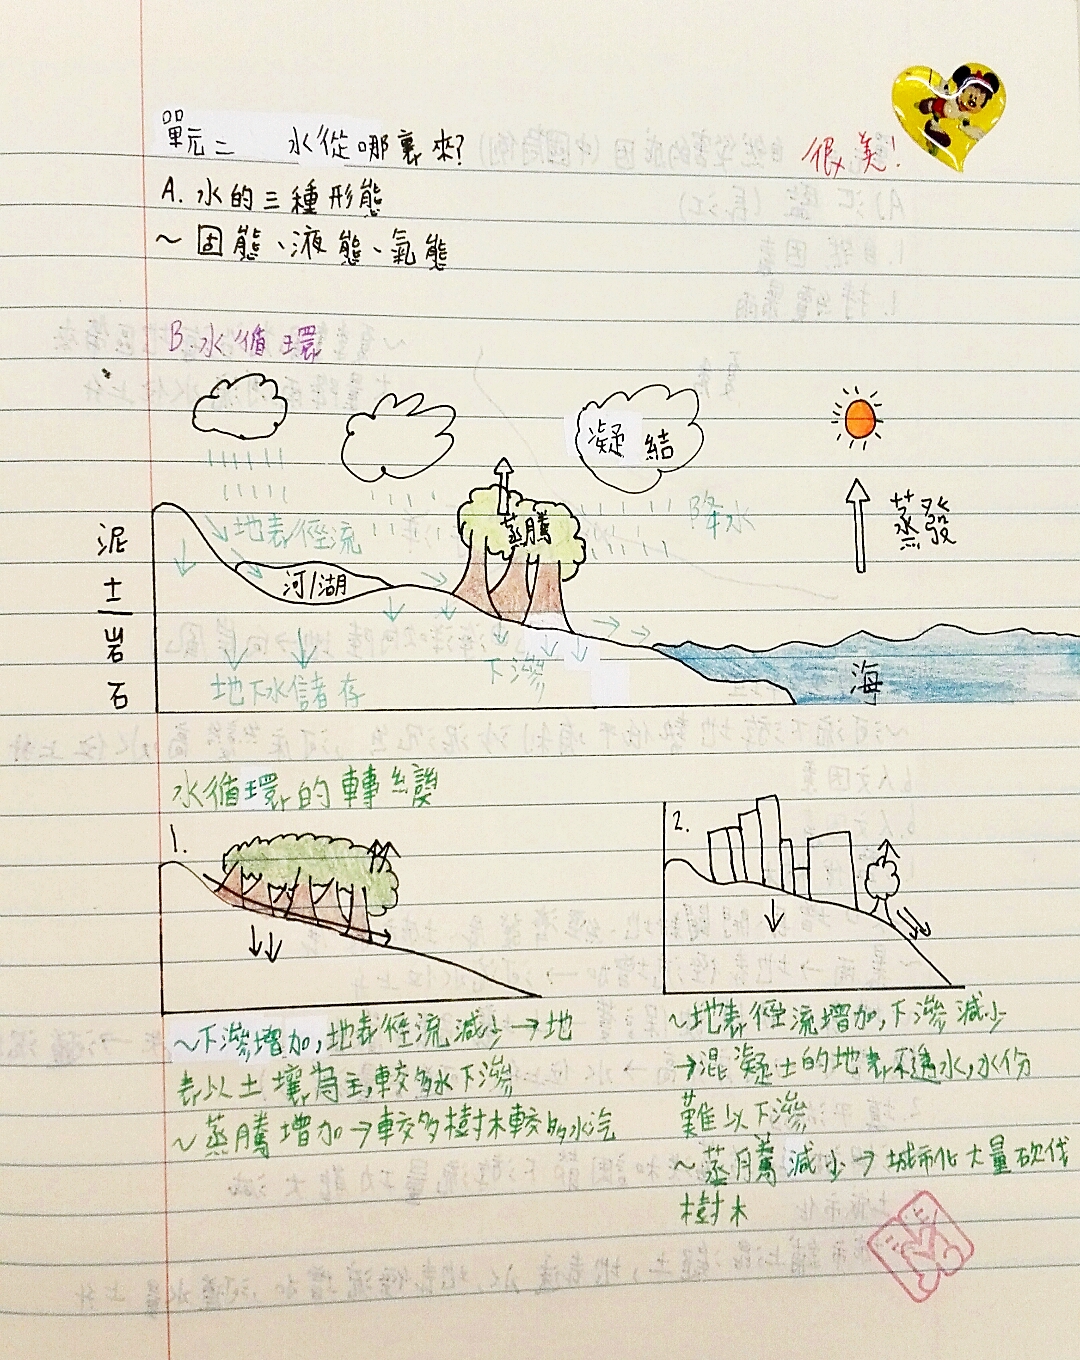 單元二 水從哪裏來?
很美!
A. 水的三種形態
~ 固態、液態、氣態
B. 水循環
凝結
蒸騰
降水
蒸發
地表徑流
河/湖
泥土/岩石
下滲
地下水儲存
海
水循環的轉變
1.
~下滲增加,地表徑流減少→地
表以土壤為主,較多水下滲
~蒸騰增加→較多樹木較多水汽
2.
~地表徑流增加,下滲減少
→混凝土的地表不透水,水份
難以下滲
~蒸騰減少→城市化大量砍伐
樹木